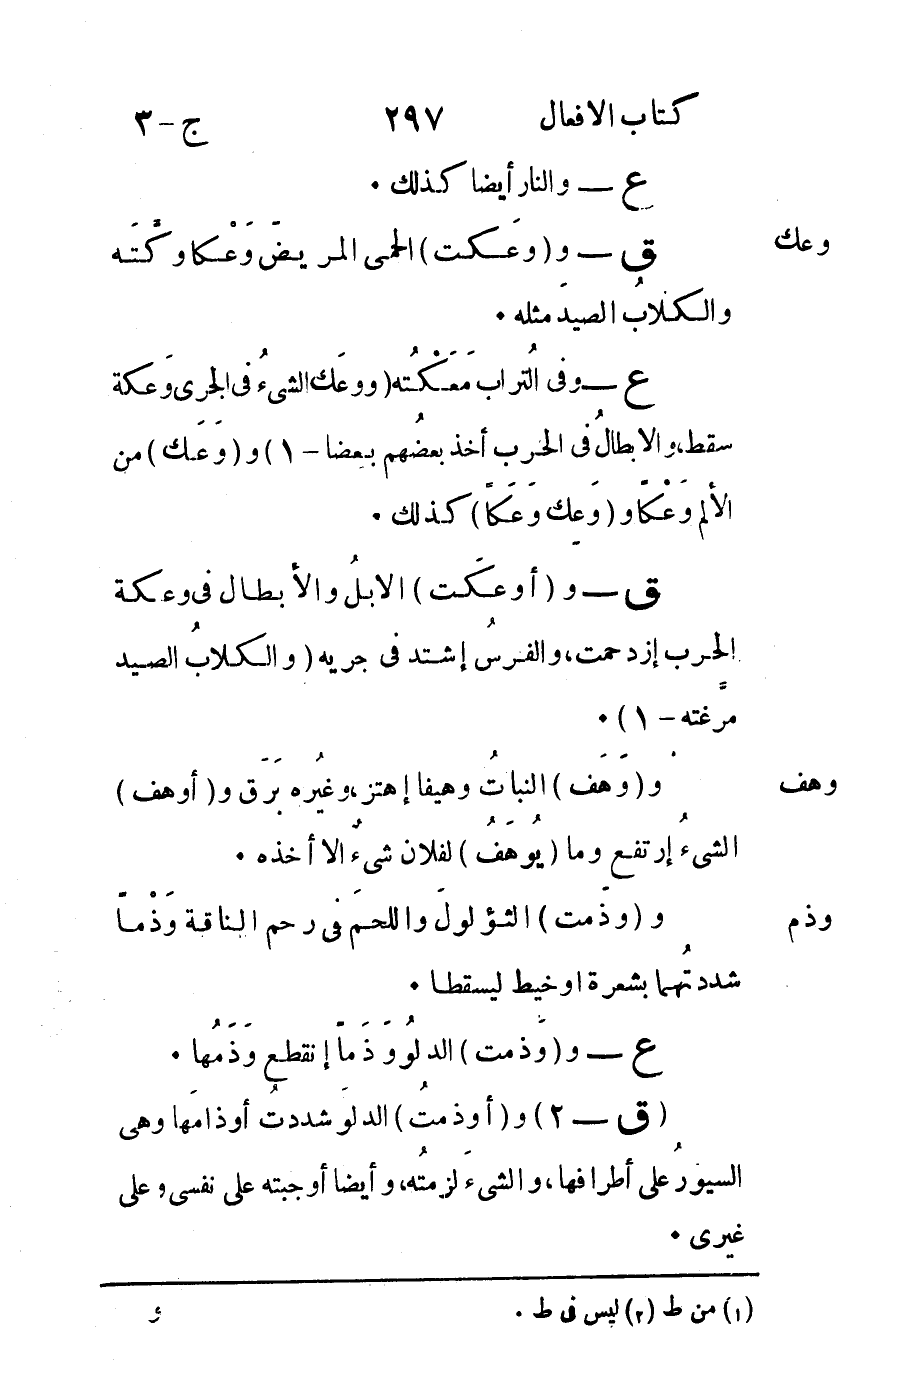 كتاب الافعال ٢٩٧ ج-٣
ع — والنار أيضا كذلك ٠
وعك ق — و (وعَكت) الحمى المريضَ وَعْكا وكَّتَه
والكلابُ الصيدَ مثله ٠
ع — وفى التُراب مَعَكْتُه (ووعَك الشىءُ فى الجرى وَعكة
سقط، والابطالُ فى الحرب أخذ بعضُهم بعضا - ١) و (وَعَك) من
الألم وَعْكًا و (وَعِك وَعَكًا) كذلك ٠
ق — و (أوعَكت) الابلُ والأبطال فى وعكة
الحرب إزدحمت، والفرسُ إشتد فى جريه (والكلابُ الصيد
مرّغته - ١) ٠
وهف و (وَهَف) النباتُ وهيفا إهتز، وغيرُه بَرَق و (أوهف)
الشىءُ إرتفع وما (يُوهَفُ) لفلان شىءٌ الا أخذه ٠
وذم و (وذَمت) الثؤلولَ واللحمَ فى رحم الناقة وَذْماً
شددتُهما بشعرة اوخيط ليسقطا ٠
ع — و (وَذِمت) الدلوُ وَذَماً إنقطع وَذَمُها ٠
(ق — ٢) و (أوذمتُ) الدلوَ شددتُ أوذامَها وهى
السيورُ على أطرافها، والشىءَ لزمتُه، وأيضا أوجبته على نفسى وعلى
غيرى ٠
(١) من ط (٢) ليس فى ط ٠